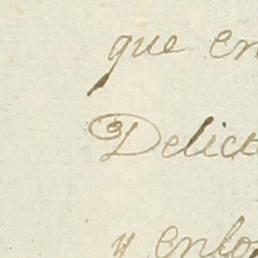 que en
Delict
y enlo